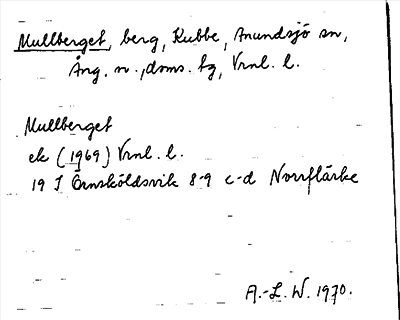 Mullberget, berg, Kubbe, Anundsjö sn,
Ång. n., doms. tg, Vrnl. l.
Mullberget
ek (1969) Vrnl. l.
19 I Örnsköldsvik 8-9 c-d Norrflärke
A.-L. W. 1970.